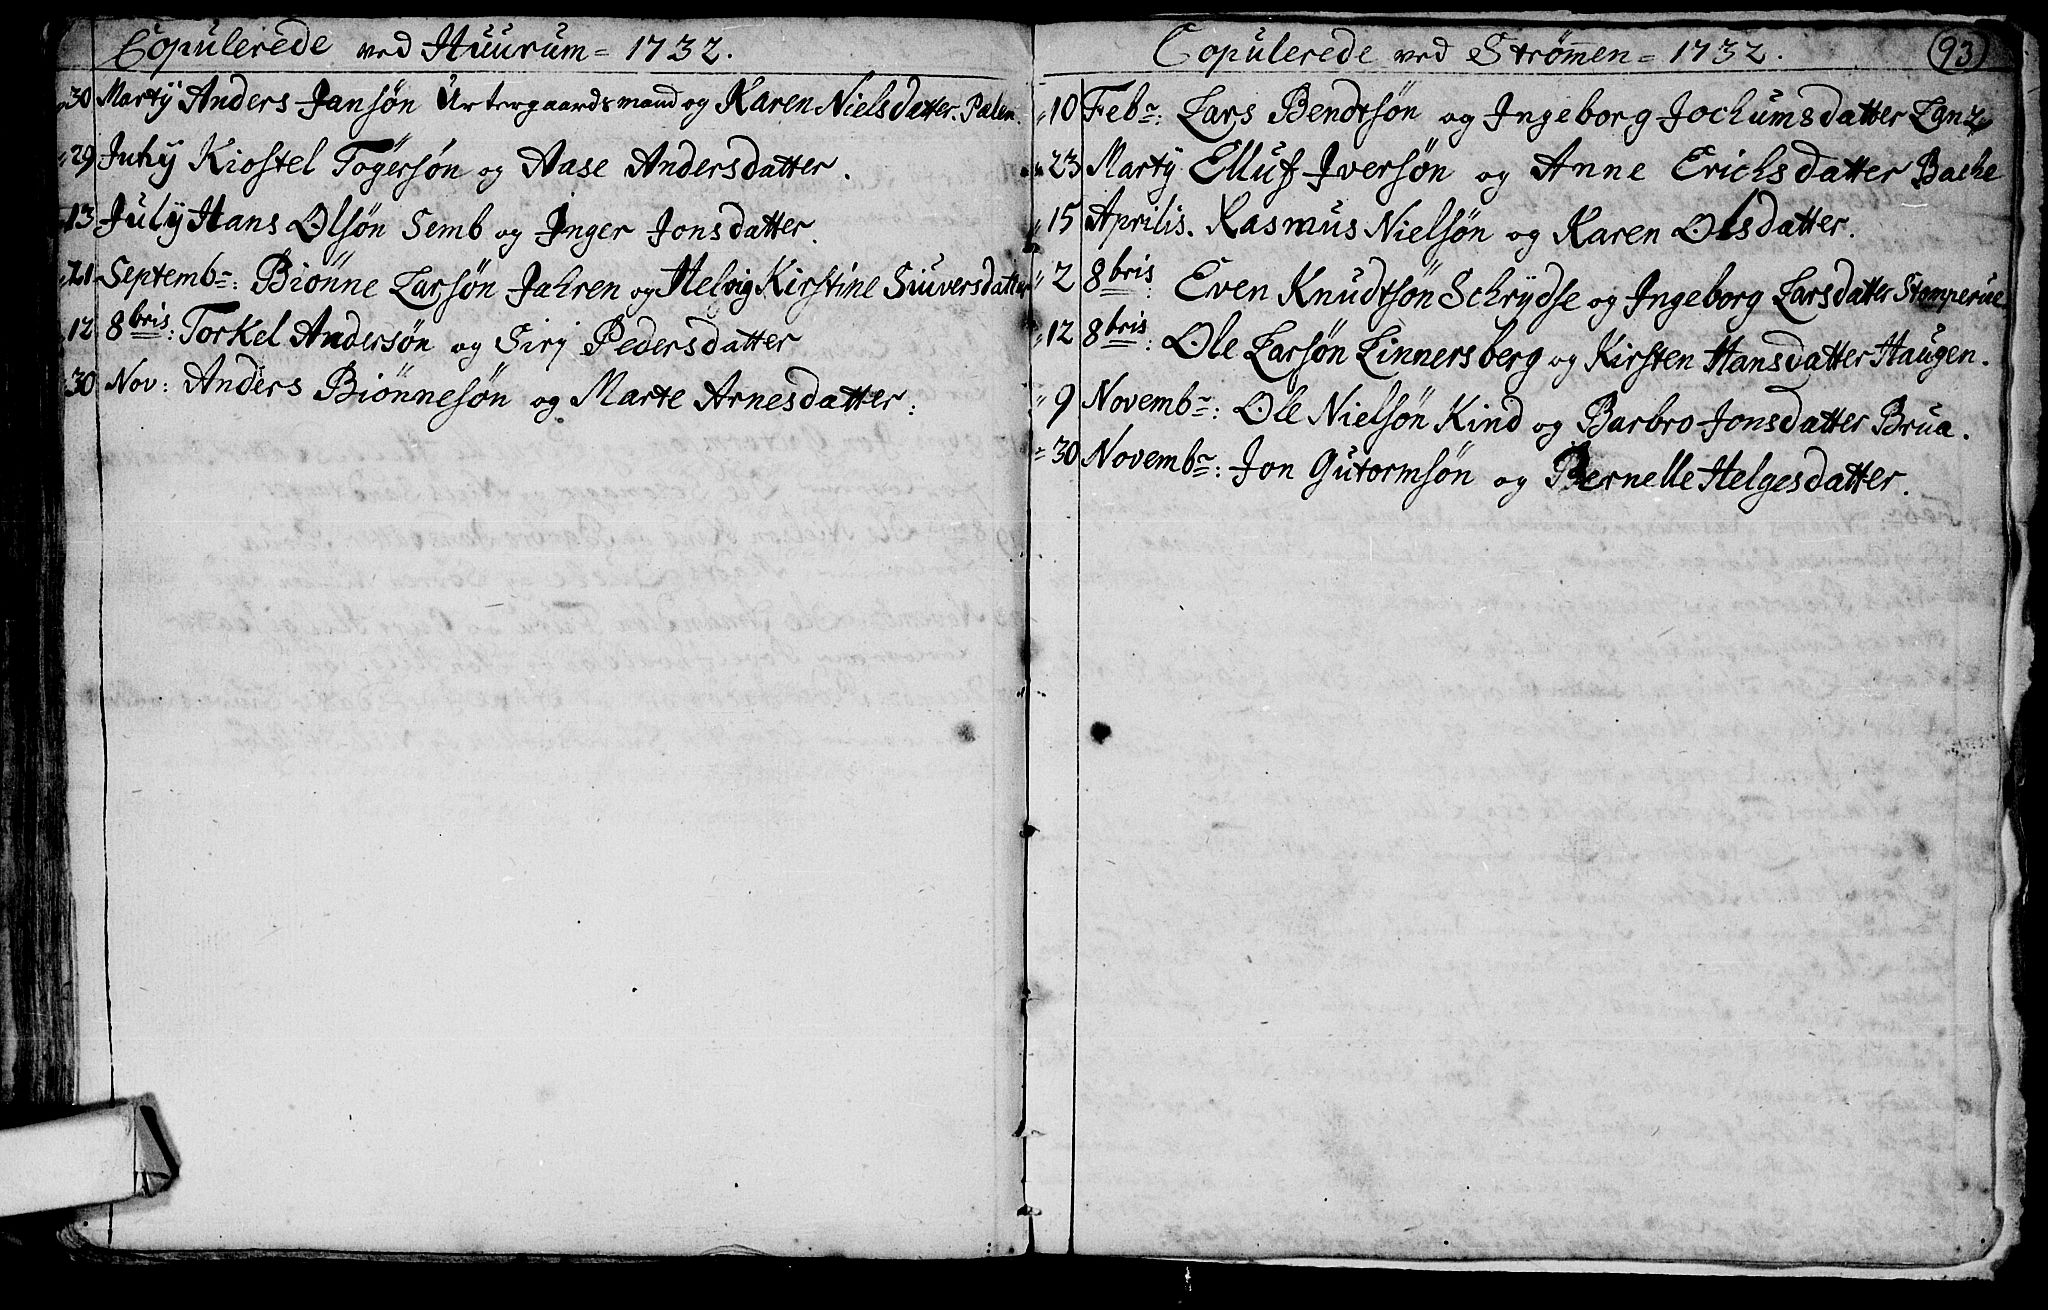 Copulerede ved Huurum = 1732.
30 Martij Anders Jansøn Urtergaardsmand og Karen Nielsdatter. Palen.
29 Kiostel Togersøn og Aase Andersdatter.
13 July Hans Olsøn Semb og Inger Jonsdatter.
21 Septembr: Biønne Larsøn Jahren og Helvig Kirstine Siuversdatter
12 8bris: Torkel Andersøn og Sirj Pedersdatter
30 Nov: Anders Biønnesøn og Marte Arnesdatter:
Copulerede ved Strømen = 1732.
93
10 Febr: Lars Bendtsøn og Ingeborg Jochumsdatter
23 Martij Elluf Iversøn og Anne Erichsdatter Bache
15 Aprilis. Rasmus Nielsøn og Karen Olsdatter.
2 8bris: Even Knudtsøn Schrydse og Ingeborg Larsdatter Stomperue
12 8bris: Ole Larsøn Linnersberg og Kirsten Hansdatter Haugen.
9 Novembr: Ole Nielsøn Kind og Barbro Jonsdatter Brua.
30 Novembr: Jon Gutormsøn og Bernelle Helgesdatter.